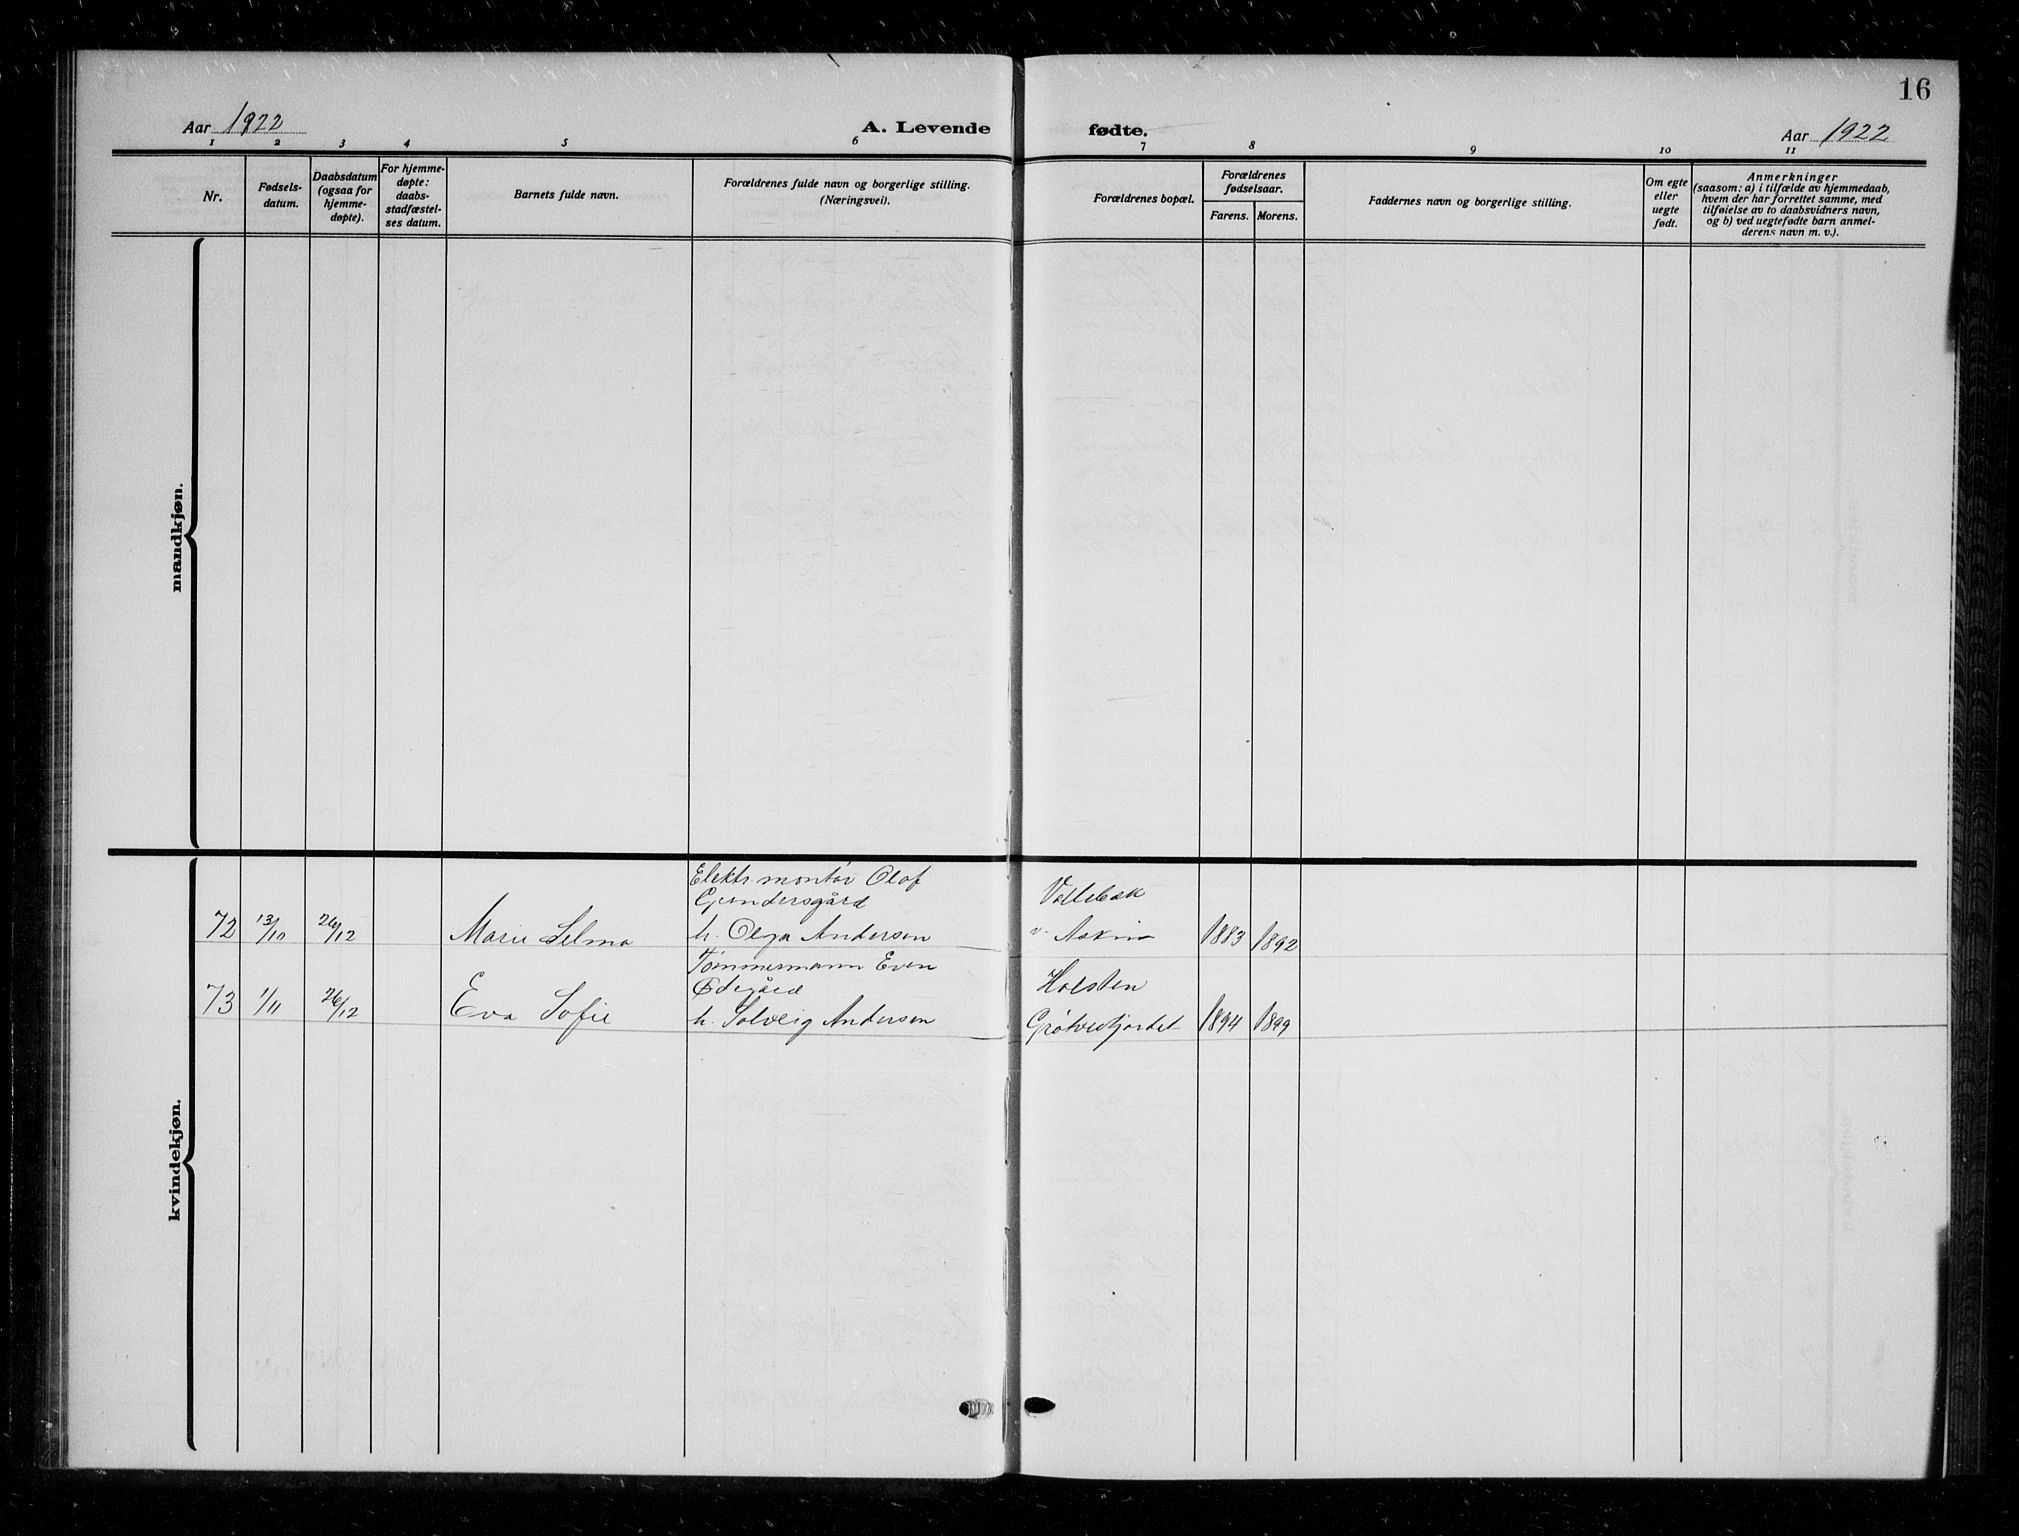 16
Aar 1922 A. Levende fødte. Aar 1922
1 2 3 4 5 6 7 8 9 10 11
Nr.
Fødsels-
datum.
Daabsdatum
(ogsaa for
hjemme-
døpte).
For hjemme-
døpte:
daabs-
stadfæstel-
ses datum.
Barnets fulde navn.
Forældrenes fulde navn og borgerlige stilling.
(Næringsvei).
Forældrenes bopæl.
Forældrenes
fødselsaar.
Farens. Morens.
Faddernes navn og borgerlige stilling.
Om egte
eller
uegte
født.
Anmerkninger
(saasom: a) i tilfælde av hjemmedaab,
hvem der har forrettet samme, med
tilføielse av to daabsvidners navn,
og b) ved uegtefødte barn anmel-
derens navn m. v.).
mandkjøn.
kvindekjøn.
Elektr. montør Olof
Gundersgård Vollebæk
72 13/10 26/12 Marie Selma h. Olga Andersen v. Askim 1883 1892
Tømmermann Even
Ødegård Holsten
73 1/11 26/12 Eva Sofie h. Solveig Andersen Grøtvedtjordet 1894 1899